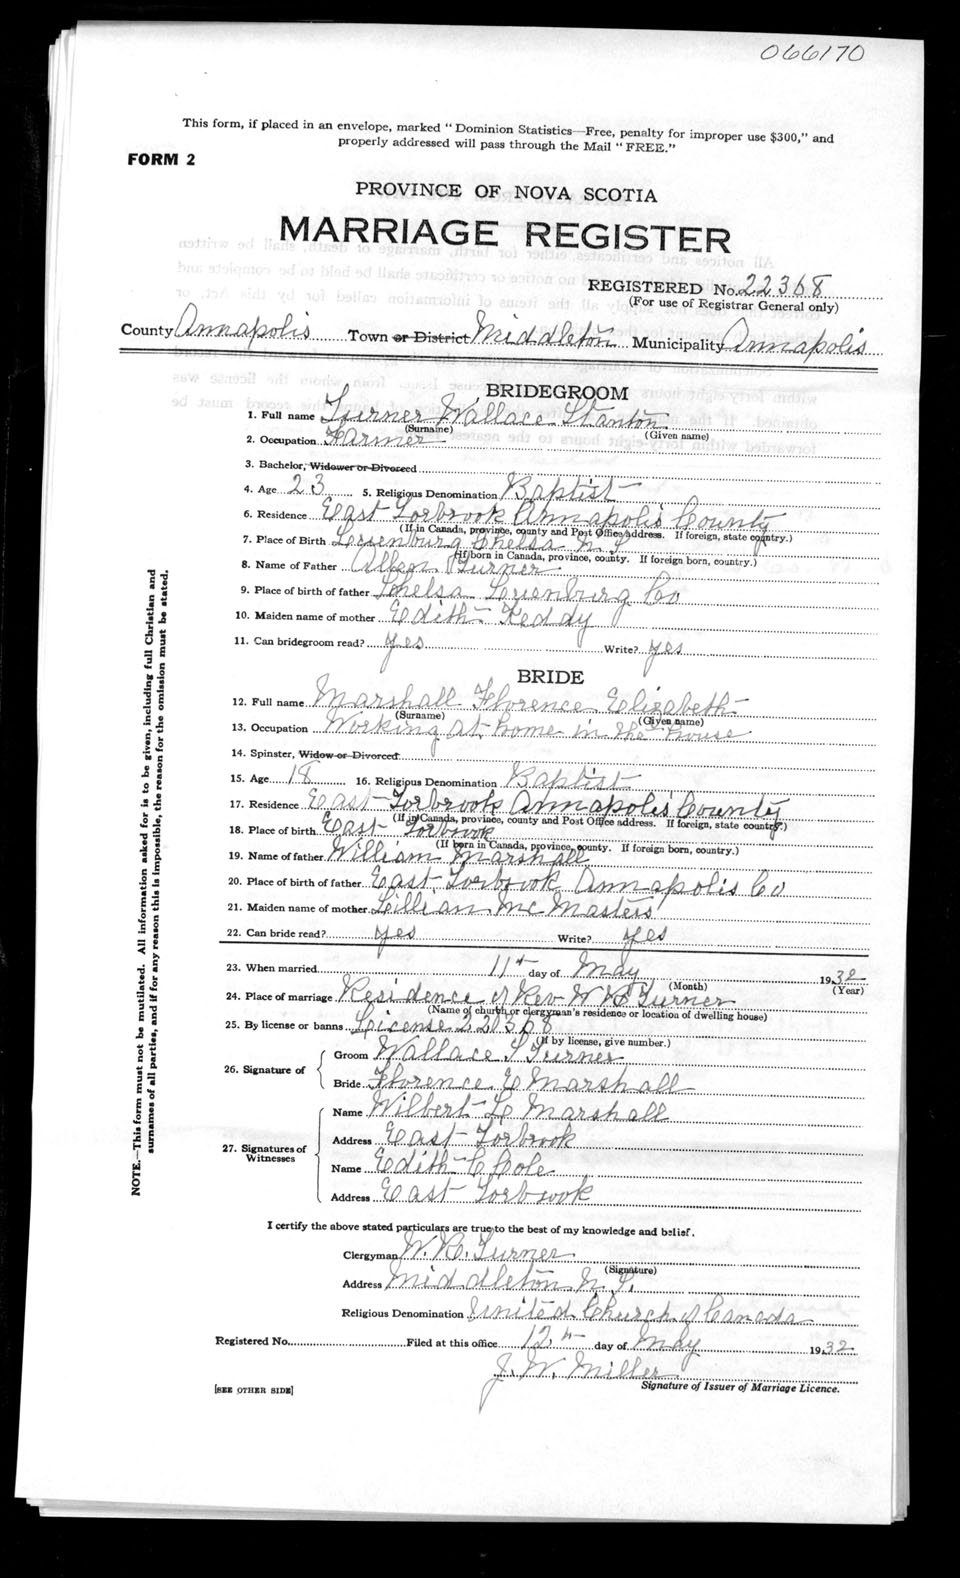 066170
This form, if placed in an envelope, marked "Dominion Statistics—Free, penalty for improper use $300," and
properly addressed will pass through the Mail "FREE."
FORM 2
PROVINCE OF NOVA SCOTIA
MARRIAGE REGISTER
REGISTERED No. 22368
(For use of Registrar General only)
County Annapolis Town or District Middleton Municipality Annapolis
BRIDEGROOM
1. Full name Turner Wallace Stanton
(Surname) (Given name)
2. Occupation Farmer
3. Bachelor, Widower or Divorced
4. Age 23 5. Religious Denomination Baptist
6. Residence East Torbrook Annapolis County
(If in Canada, province, county and Post Office address. If foreign, state country.)
7. Place of Birth Luenburg Chelsa N S
(If born in Canada, province, county. If foreign born, country.)
8. Name of Father Turner
9. Place of birth of father Chelsa Luenburg Co
10. Maiden name of mother Edith Keddy
11. Can bridegroom read? yes Write? yes
BRIDE
12. Full name Marshall Florence Elizabeth
(Surname) (Given name)
13. Occupation Working at home in the house
14. Spinster, Widow or Divorced
15. Age 18 16. Religious Denomination Baptist
17. Residence East Torbrook Annapolis County
(If in Canada, province, county and Post Office address. If foreign, state country.)
18. Place of birth East Torbrook
(If born in Canada, province, county. If foreign born, country.)
19. Name of father William Marshall
20. Place of birth of father East Torbrook Annapolis Co
21. Maiden name of mother Lillian McMasters
22. Can bride read? yes Write? yes
23. When married 11th day of May 1932
(Month) (Year)
24. Place of marriage Residence of Rev W R Turner
(Name of church or clergyman's residence or location of dwelling house)
25. By license or banns License 22368
(If by license, give number.)
26. Signature of
Groom Wallace S Turner
Bride Florence E Marshall
27. Signatures of Witnesses
Name Wilbert L Marshall
Address East Torbrook
Name Edith C Cole
Address East Torbrook
I certify the above stated particulars are true to the best of my knowledge and belief.
Clergyman W. R. Turner
(Signature)
Address Middleton N. S.
Religious Denomination United Church of Canada
Registered No. Filed at this office 12th day of May 1932
J. W. Miller
[SEE OTHER SIDE] Signature of Issuer of Marriage Licence.
NOTE.—This form must not be mutilated. All information asked for is to be given, including full Christian and
surnames of all parties, and if for any reason this is impossible, the reason for the omission must be stated.